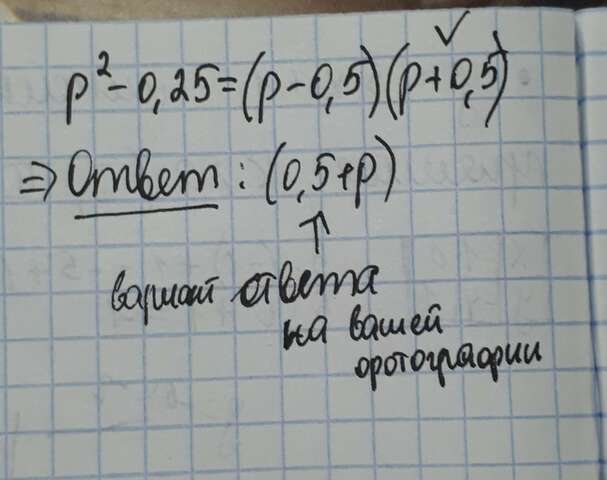 p² - 0,25 = (p - 0,5)(p + 0,5)
⇒ Ответ: (0,5+p)
↑
вариант ответа
на вашей
фотографии